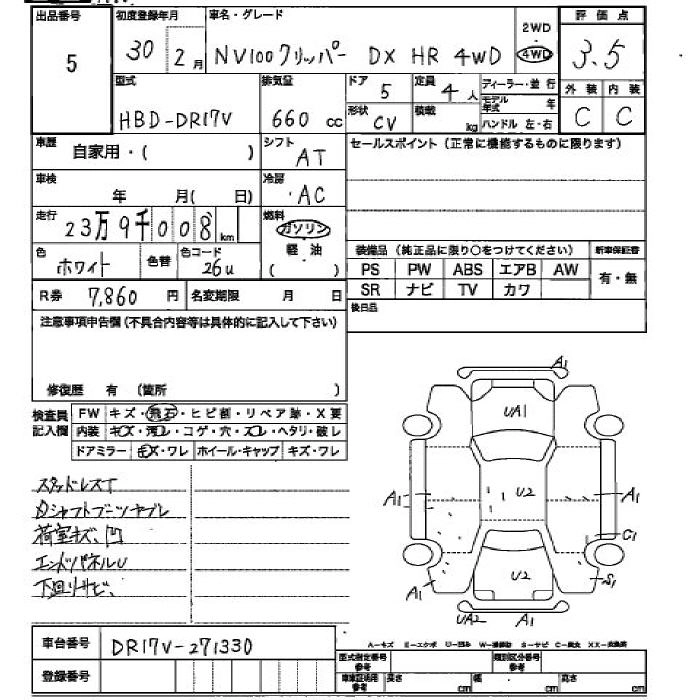 出品番号 初度登録年月 車名・グレード 2WD 4WD 評価点
5 30年 2月 NV100クリッパー DX HR 4WD 3.5
型式 排気量 ドア 定員 ディーラー・並行 外装 内装
HBD-DR17V 660 cc 5 4人 モデル年式 年 C C
形状 積載 ハンドル 左・右
CV kg
車歴 自家用・( ) シフト AT セールスポイント(正常に機能するものに限ります)
車検 年 月( 日) 冷房 AC
走行 23万9千008km 燃料 ガソリン
軽油
( )
色 ホワイト 色替 色コード 26U
装備品(純正品に限り○をつけてください) 新車保証書
PS PW ABS エアB AW 有・無
SR ナビ TV カワ
R券 7,860円 名変期限 月 日 後日品
注意事項申告欄(不具合内容等は具体的に記入して下さい)
修復歴 有 (箇所 )
検査員記入欄 FW キズ・飛石・ヒビ割・リペア跡・X要
内装 キズ・汚れ・コゲ・穴・スレ・ヘタリ・破レ
ドアミラー キズ・ワレ ホイール・キャップ キズ・ワレ
スタッドレスT
Dシャフトブーツヤブレ
荷室キズ、凹
エンドパネルU
下回りサビ、
A1
UA1
A1 U2 A1
C1
U2
A1 S1
UA2 A1
車台番号 DR17V-271330
A-キズ E-エクボ U-凹み W-補修跡 S-サビ C-腐食 XX-交換済
登録番号
型式指定番号 参考 類別区分番号 参考
車庫証明用 参考 長さ cm 幅 cm 高さ cm